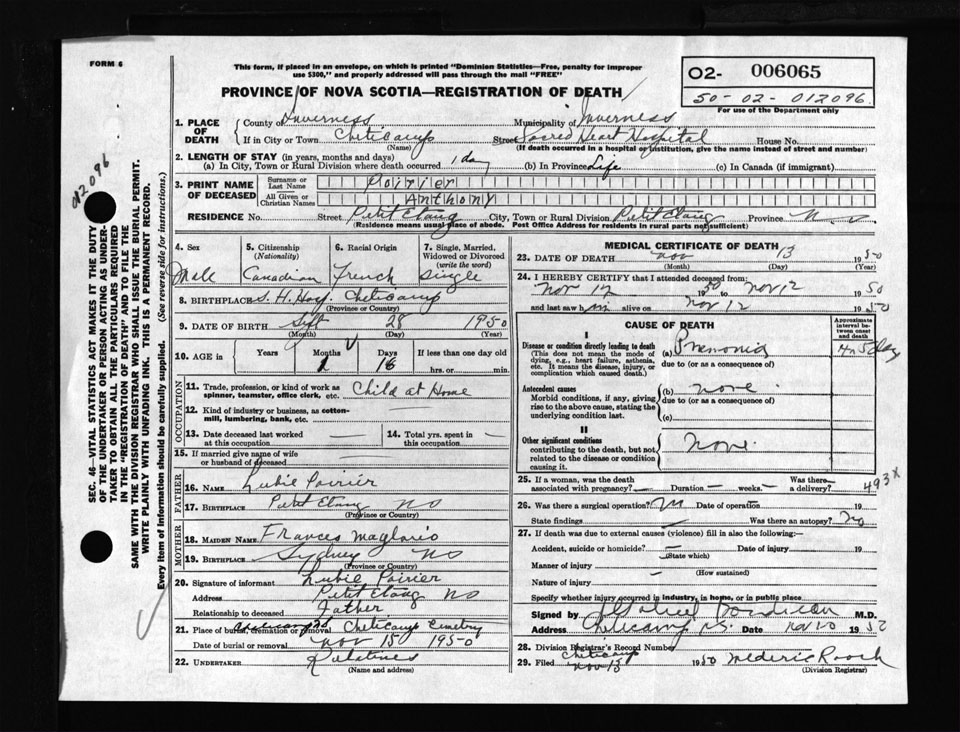 FORM 6
This form, if placed in an envelope, on which is printed "Dominion Statistics—Free, penalty for improper
use $300," and properly addressed will pass through the mail "FREE"
O2- 006065
50-02-012096.
For use of the Department only
PROVINCE OF NOVA SCOTIA—REGISTRATION OF DEATH
1. PLACE OF DEATH
County of Inverness Municipality of Inverness
If in City or Town Cheticamp Street Sacred Heart Hospital House No.
(Name) (If death occurred in a hospital or institution, give the name instead of street and number)
2. LENGTH OF STAY (in years, months and days)
(a) In City, Town or Rural Division where death occurred 1 day (b) In Province Life (c) In Canada (if immigrant)
3. PRINT NAME OF DECEASED
Surname or Last Name Poirier
All Given or Christian Names Anthony
RESIDENCE No. Street Petit Etang City, Town or Rural Division Petit Etang Province
(Residence means usual place of abode. Post Office Address for residents in rural parts not sufficient)
4. Sex Male
5. Citizenship (Nationality) Canadian
6. Racial Origin French
7. Single, Married, Widowed or Divorced (write the word) Single
8. BIRTHPLACE S. H. Hosp. Cheticamp
(Province or Country)
9. DATE OF BIRTH Sept 28 1950
(Month) (Day) (Year)
10. AGE in Years Months 1 Days 16 If less than one day old
hrs. or min.
OCCUPATION
11. Trade, profession, or kind of work as spinner, teamster, office clerk, etc. Child at Home
12. Kind of industry or business, as cotton-mill, lumbering, bank, etc.
13. Date deceased last worked at this occupation —
14. Total yrs. spent in this occupation —
15. If married give name of wife or husband of deceased —
FATHER
16. Name Lubie Poirier
17. Birthplace Petit Etang
(Province or Country)
MOTHER
18. MAIDEN NAME Frances
19. BIRTHPLACE Sydney
(Province or Country)
20. Signature of informant Lubie Poirier
Address Petit Etang
Relationship to deceased Father
21. Place of burial, cremation or removal Cheticamp Cemetry
Date of burial or removal Nov 15 1950
22. UNDERTAKER Relatives
(Name and address)
MEDICAL CERTIFICATE OF DEATH
23. DATE OF DEATH Nov 13 1950
(Month) (Day)
24. I HEREBY CERTIFY that I attended deceased from
Nov 12 1950 to Nov 12 1950
and last saw him alive on Nov 12 1950
CAUSE OF DEATH
Approximate interval between onset and death
I
Disease or condition directly leading to death
(This does not mean the mode of dying, e.g., heart failure, asthenia, etc. It means the disease, injury, or complication which caused death.)
(a)
due to (or as a consequence of)
Antecedent causes
Morbid conditions, if any, giving rise to the above cause, stating the underlying condition last.
(b) none
due to (or as a consequence of)
(c)
II
Other significant conditions
contributing to the death, but not related to the disease or condition causing it.
None.
25. If a woman, was the death associated with pregnancy? — Duration — weeks. — Was there a delivery? —
493X
26. Was there a surgical operation? Date of operation 19
State findings — Was there an autopsy? No
27. If death was due to external causes (violence) fill in also the following:—
Accident, suicide or homicide? — Date of injury 19
(State which)
Manner of injury —
(How sustained)
Nature of injury
Specify whether injury occurred in industry, in home, or in public place
Signed by M.D.
Address Cheticamp N.S. Date Nov 19
28. Division Registrar's Record Number
29. Filed Cheticamp Nov 15 1950 Mederic
(Division Registrar)
012096
SEC. 46—VITAL STATISTICS ACT MAKES IT THE DUTY
OF THE UNDERTAKER OR PERSON ACTING AS UNDER-
TAKER TO OBTAIN ALL THE PARTICULARS REQUIRED
IN THE "REGISTRATION OF DEATH" AND TO FILE THE
SAME WITH THE DIVISION REGISTRAR WHO SHALL ISSUE THE BURIAL PERMIT.
WRITE PLAINLY WITH UNFADING INK. THIS IS A PERMANENT RECORD.
Every item of information should be carefully supplied. (See reverse side for instructions.)